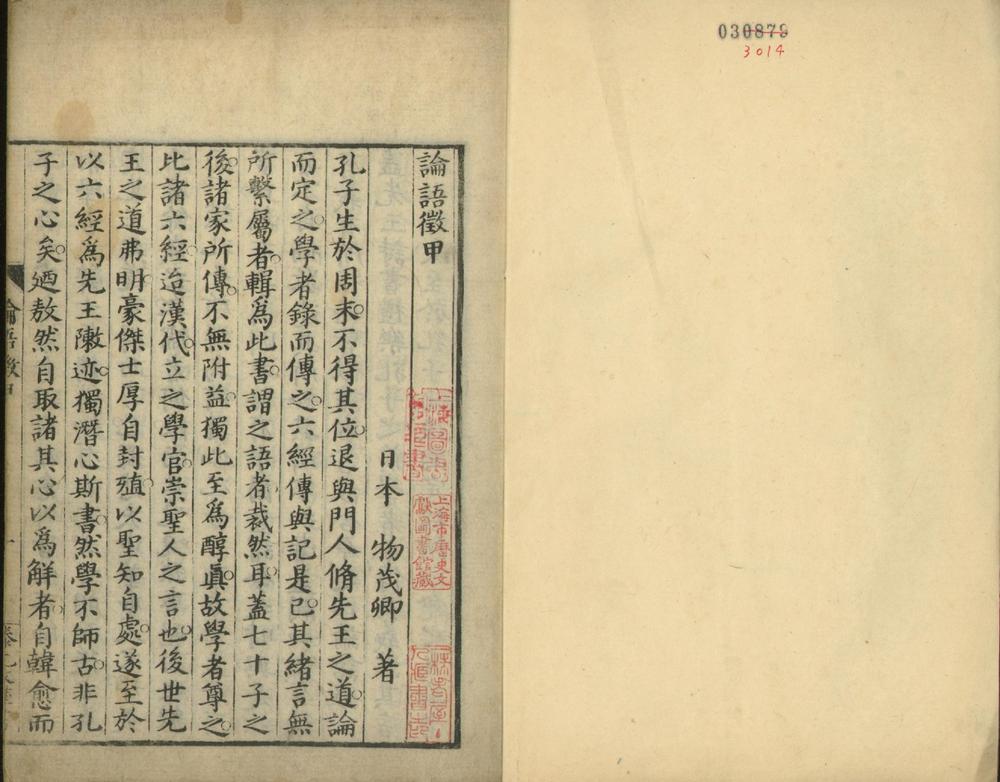 030879
3014
論語徵甲
日本 物茂卿 著
孔子生於周末。不得其位。退與門人脩先王之道。論
而定之。學者錄而傳之。六經傳與記是已。其緒言無
所繫屬者。輯爲此書。謂之語者。裁然耳。蓋七十子之
後。諸家所傳。不無附益。獨此至爲醇眞。故學者尊之。
比諸六經。迨漢代。立之學官。崇聖人之言也。後世先
王之道弗明。豪傑士厚自封殖。以聖知自處。遂至於
以六經爲先王陳迹。獨潛心斯書。然學不師古。非孔
子之心矣。廼敖然自取諸其心以爲解者。自韓愈而
論語徵甲
一
上海市歷史文
獻圖書館藏